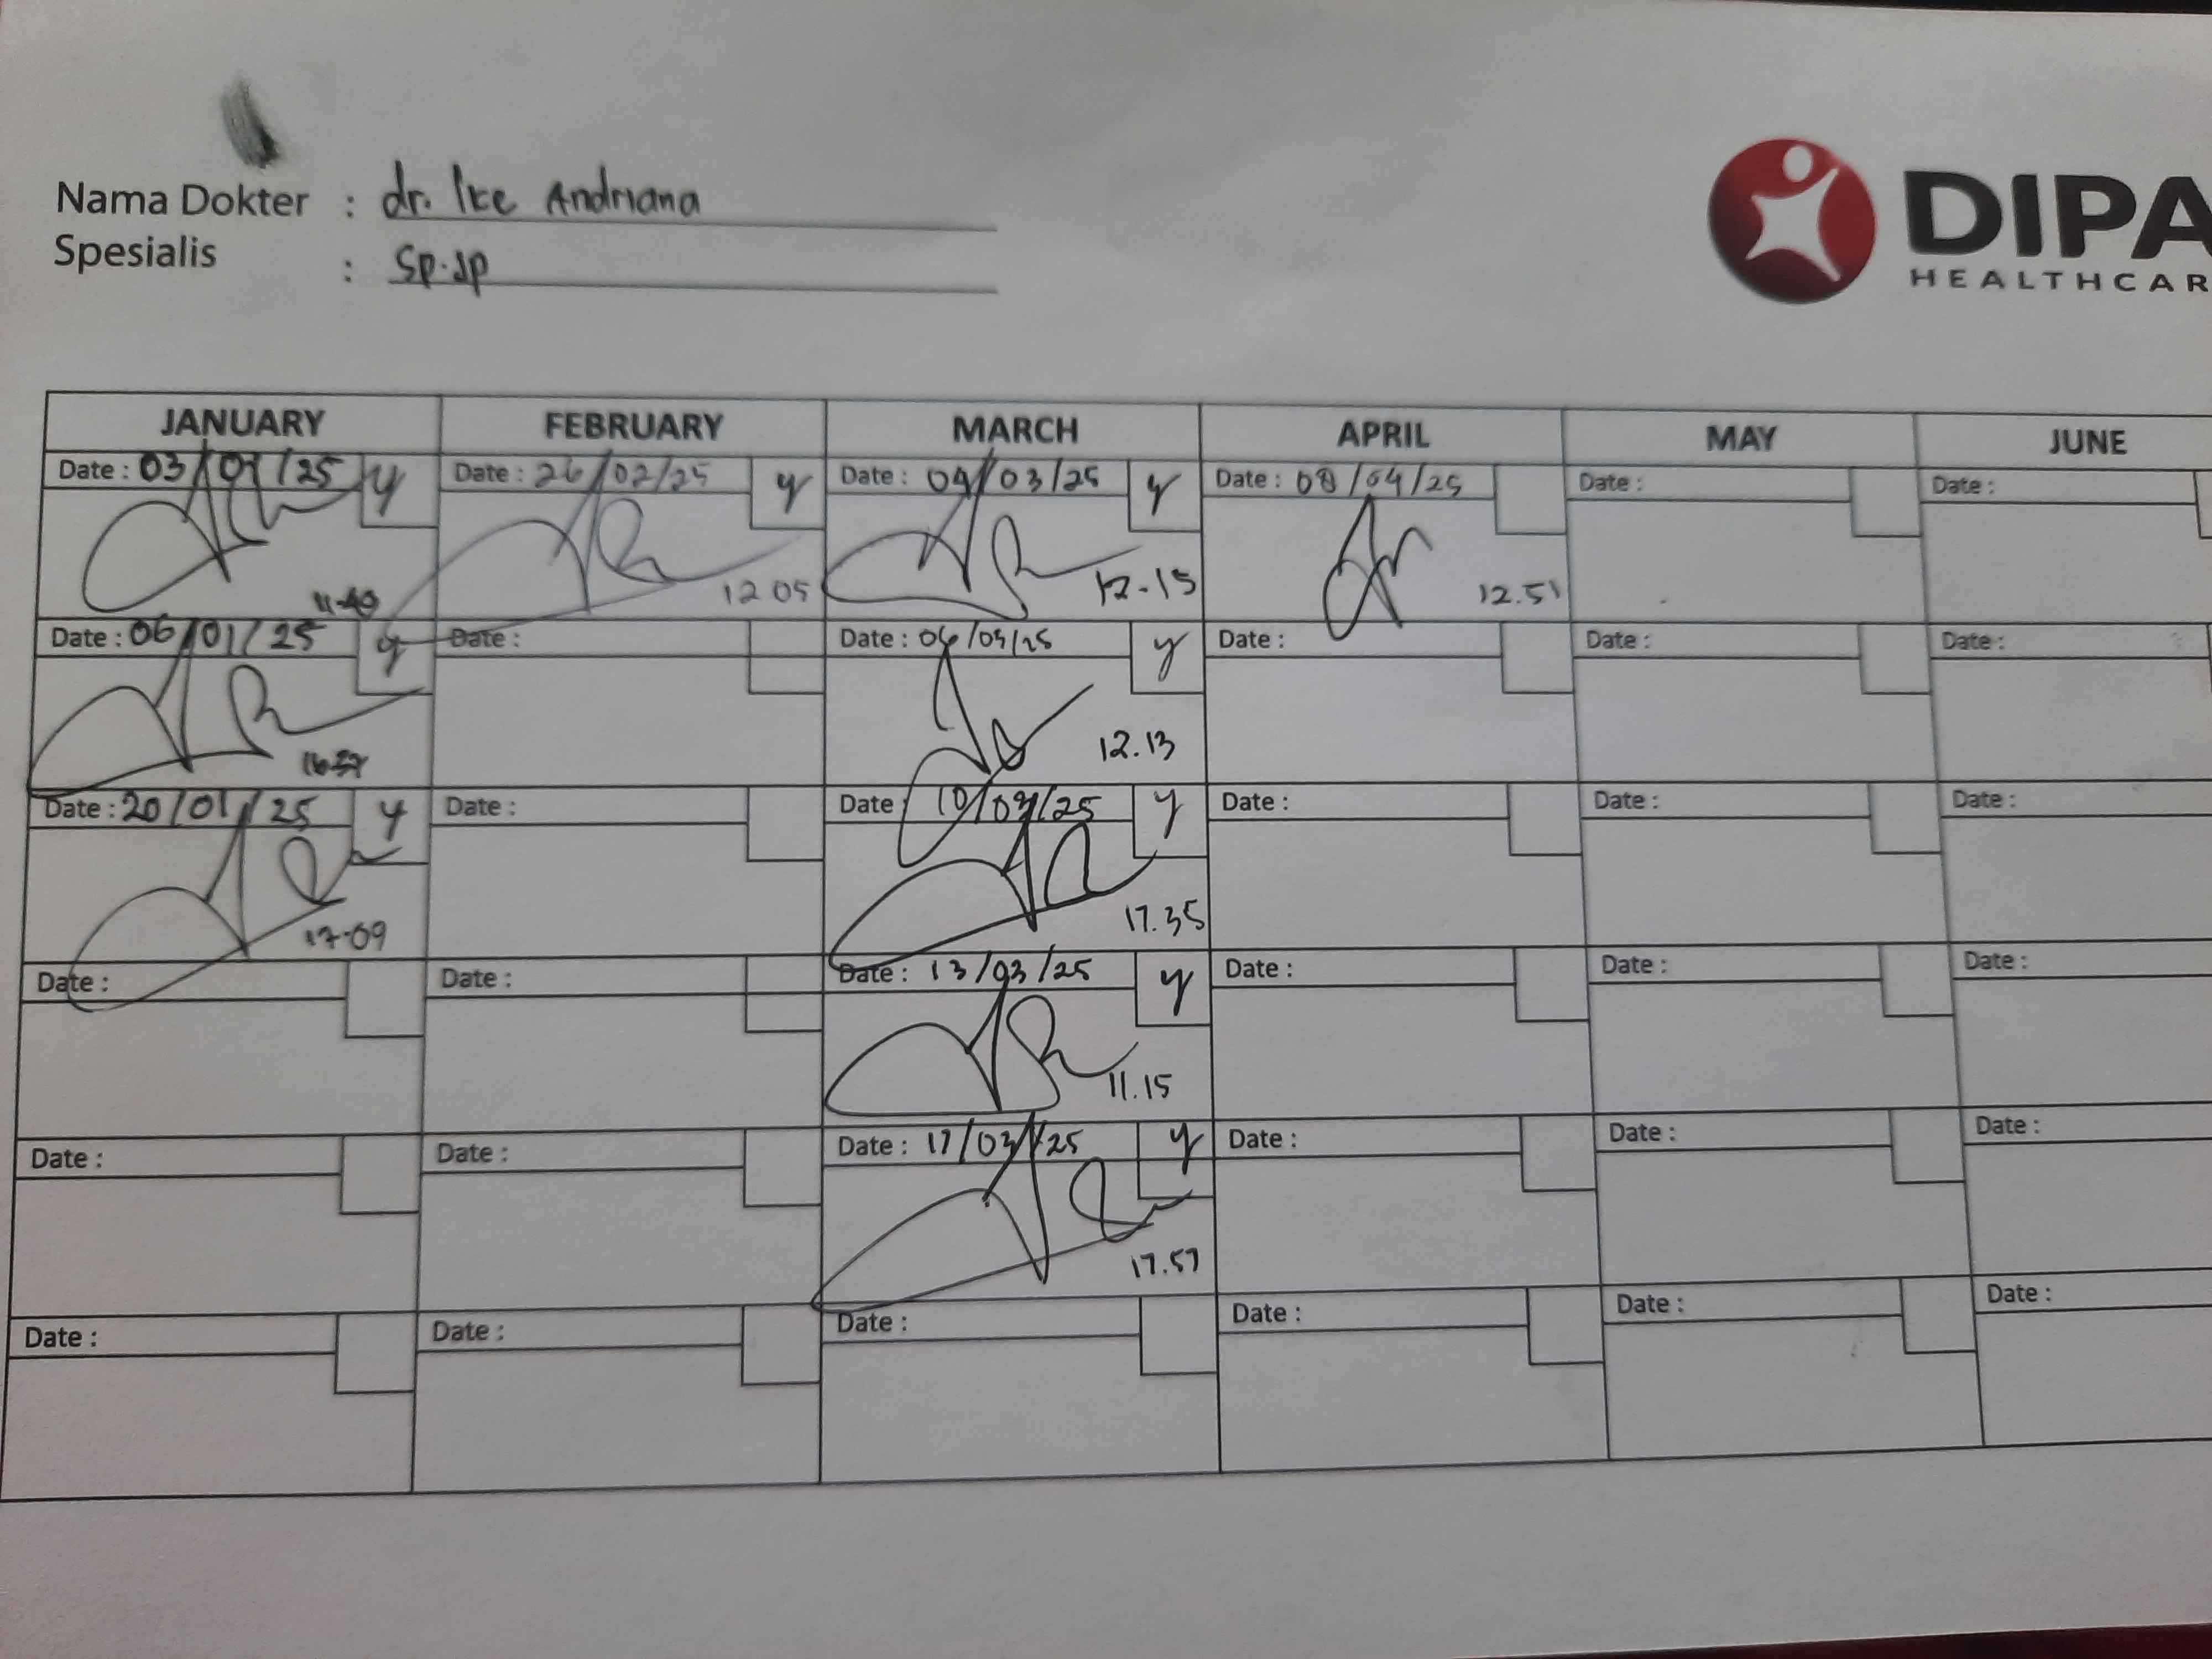 Nama Dokter : dr. Ike Andriana
Spesialis : Sp.Jp
DIPA
HEALTHCAR
JANUARY FEBRUARY MARCH APRIL MAY JUNE
Date : 03/01/25 y Date : 26/02/25 y Date : 04/03/25 y Date : 08/04/25 Date : Date :
11.40 12.05 12.15 12.51
Date : 06/01/25 y Date : Date : 06/03/25 y Date : Date : Date :
16.37 12.13
Date : 20/01/25 y Date : Date : 10/03/25 y Date : Date : Date :
17.09 17.35
Date : Date : Date : 13/03/25 y Date : Date : Date :
11.15
Date : Date : Date : 17/03/25 y Date : Date : Date :
17.57
Date : Date : Date : Date : Date : Date :